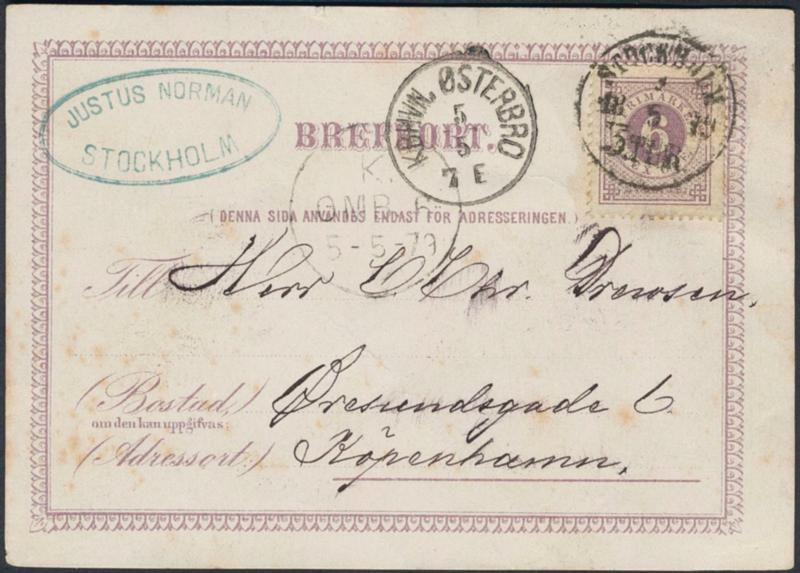 JUSTUS NORMAN
STOCKHOLM
BREFKORT.
KJØBHVN. ØSTERBRO
5
5
7 E
STOCKHOLM
5
79
FRIMÄRKE
6
SEX
K.
OMB. 6
5-5-79
(DENNA SIDA ANVÄNDES ENDAST FÖR ADRESSERINGEN.)
Till Herr C. Chr. Drewsen,
(Bostad, Øresundsgade 6
om den kan uppgifvas:)
(Adressort:) Köpenhamn,